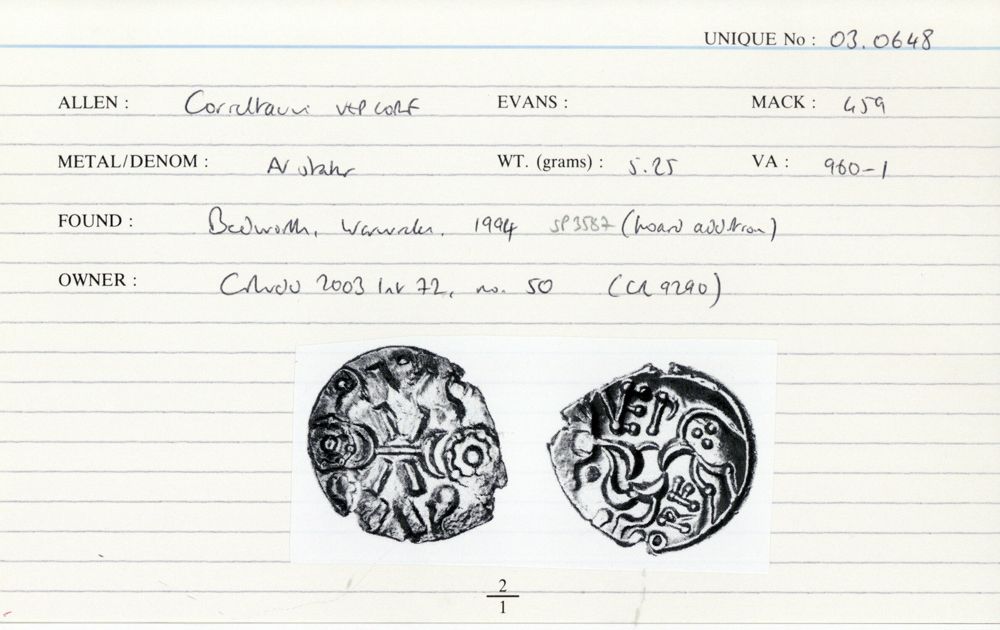 UNIQUE No : 03.0648
ALLEN : Corieltauvi VEP CORF EVANS : MACK : 459
METAL/DENOM : AV stater WT. (grams) : 5.25 VA : 960-1
FOUND : Bedworth, Warwicks. 1994 SP3587 (hoard addition)
OWNER : 2003 list 72, no. 50 (CR 9290)
VEP
2
1